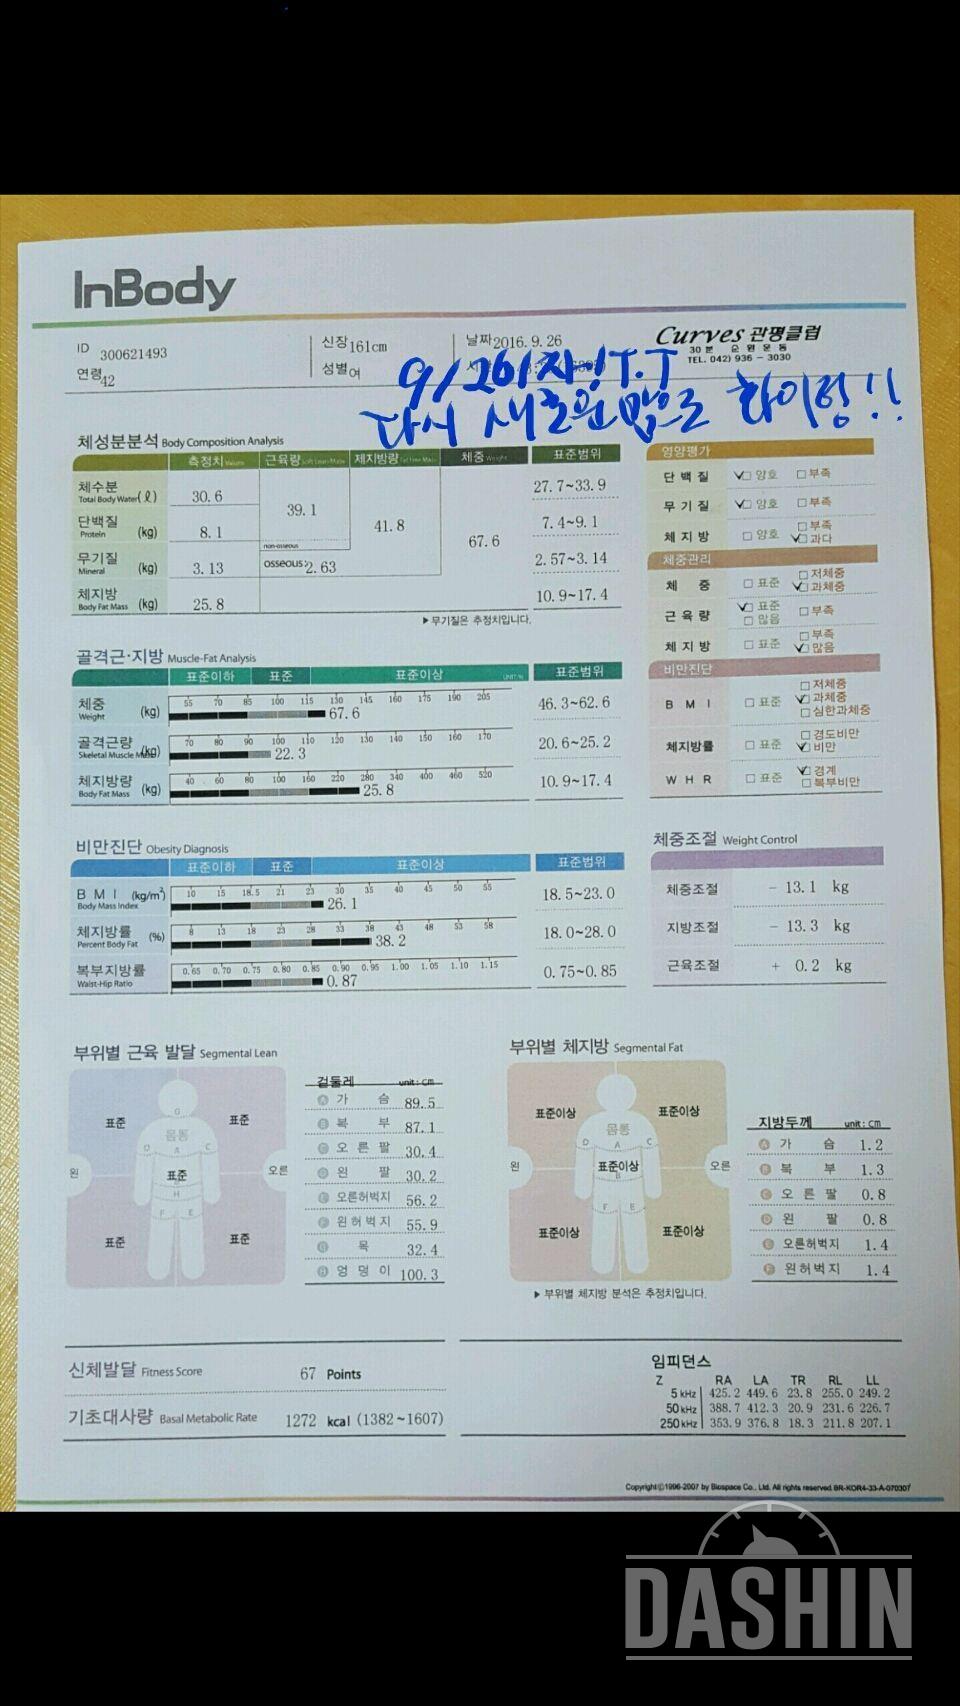 InBody
ID 300621493
연령 42
신장 161cm
성별 여
날짜 2016. 9. 26
Curves 관평클럽
30분 순환운동
TEL. 042) 936 - 3030
9/26일자! T.T
다시 새로운 맘으로 화이팅!!
체성분분석 Body Composition Analysis
측정치 근육량 제지방량 체중 표준범위
체수분 Total Body Water(ℓ) 30.6 27.7~33.9
단백질 Protein (kg) 8.1 39.1 41.8 67.6 7.4~9.1
무기질 Mineral (kg) 3.13 non-osseous osseous:2.63 2.57~3.14
체지방 Body Fat Mass (kg) 25.8 10.9~17.4
▶무기질은 추정치입니다.
영양평가
단백질 양호 부족
무기질 양호 부족
체지방 양호 부족 과다
체중관리
체중 표준 저체중 과체중
근육량 표준 많음 부족
체지방 표준 부족 많음
비만진단
BMI 표준 저체중 과체중 심한과체중
체지방률 표준 경도비만 비만
WHR 표준 경계 복부비만
골격근·지방 Muscle-Fat Analysis
표준이하 표준 표준이상 UNIT:% 표준범위
체중 Weight (kg) 55 70 85 100 115 130 145 160 175 190 205 67.6 46.3~62.6
골격근량 Skeletal Muscle Mass (kg) 70 80 90 100 110 120 130 140 150 160 170 22.3 20.6~25.2
체지방량 Body Fat Mass (kg) 40 60 80 100 160 220 280 340 400 460 520 25.8 10.9~17.4
비만진단 Obesity Diagnosis
표준이하 표준 표준이상 표준범위
BMI (kg/m²) Body Mass Index 10 15 18.5 21 23 30 35 40 45 50 55 26.1 18.5~23.0
체지방률 (%) Percent Body Fat 8 13 18 23 28 33 38 43 48 53 58 38.2 18.0~28.0
복부지방률 Waist-Hip Ratio 0.65 0.70 0.75 0.80 0.85 0.90 0.95 1.00 1.05 1.10 1.15 0.87 0.75~0.85
체중조절 Weight Control
체중조절 - 13.1 kg
지방조절 - 13.3 kg
근육조절 + 0.2 kg
부위별 근육 발달 Segmental Lean
표준 표준
몸통
왼 표준 오른
표준 표준
겉둘레 unit: cm
A 가슴 89.5
B 복부 87.1
C 오른팔 30.4
D 왼팔 30.2
E 오른허벅지 56.2
F 왼허벅지 55.9
G 목 32.4
H 엉덩이 100.3
부위별 체지방 Segmental Fat
표준이상 표준이상
몸통
왼 표준이상 오른
표준이상 표준이상
▶부위별 체지방 분석은 추정치입니다.
지방두께 unit: cm
A 가슴 1.2
B 복부 1.3
C 오른팔 0.8
D 왼팔 0.8
E 오른허벅지 1.4
F 왼허벅지 1.4
신체발달 Fitness Score 67 Points
기초대사량 Basal Metabolic Rate 1272 kcal (1382~1607)
임피던스
Z RA LA TR RL LL
5 kHz 425.2 449.6 23.8 255.0 249.2
50 kHz 388.7 412.3 20.9 231.6 226.7
250 kHz 353.9 376.8 18.3 211.8 207.1
Copyright©1996-2007 by Biospace Co., Ltd. All rights reserved. BR-KOR4-33-A-070307
DASHIN